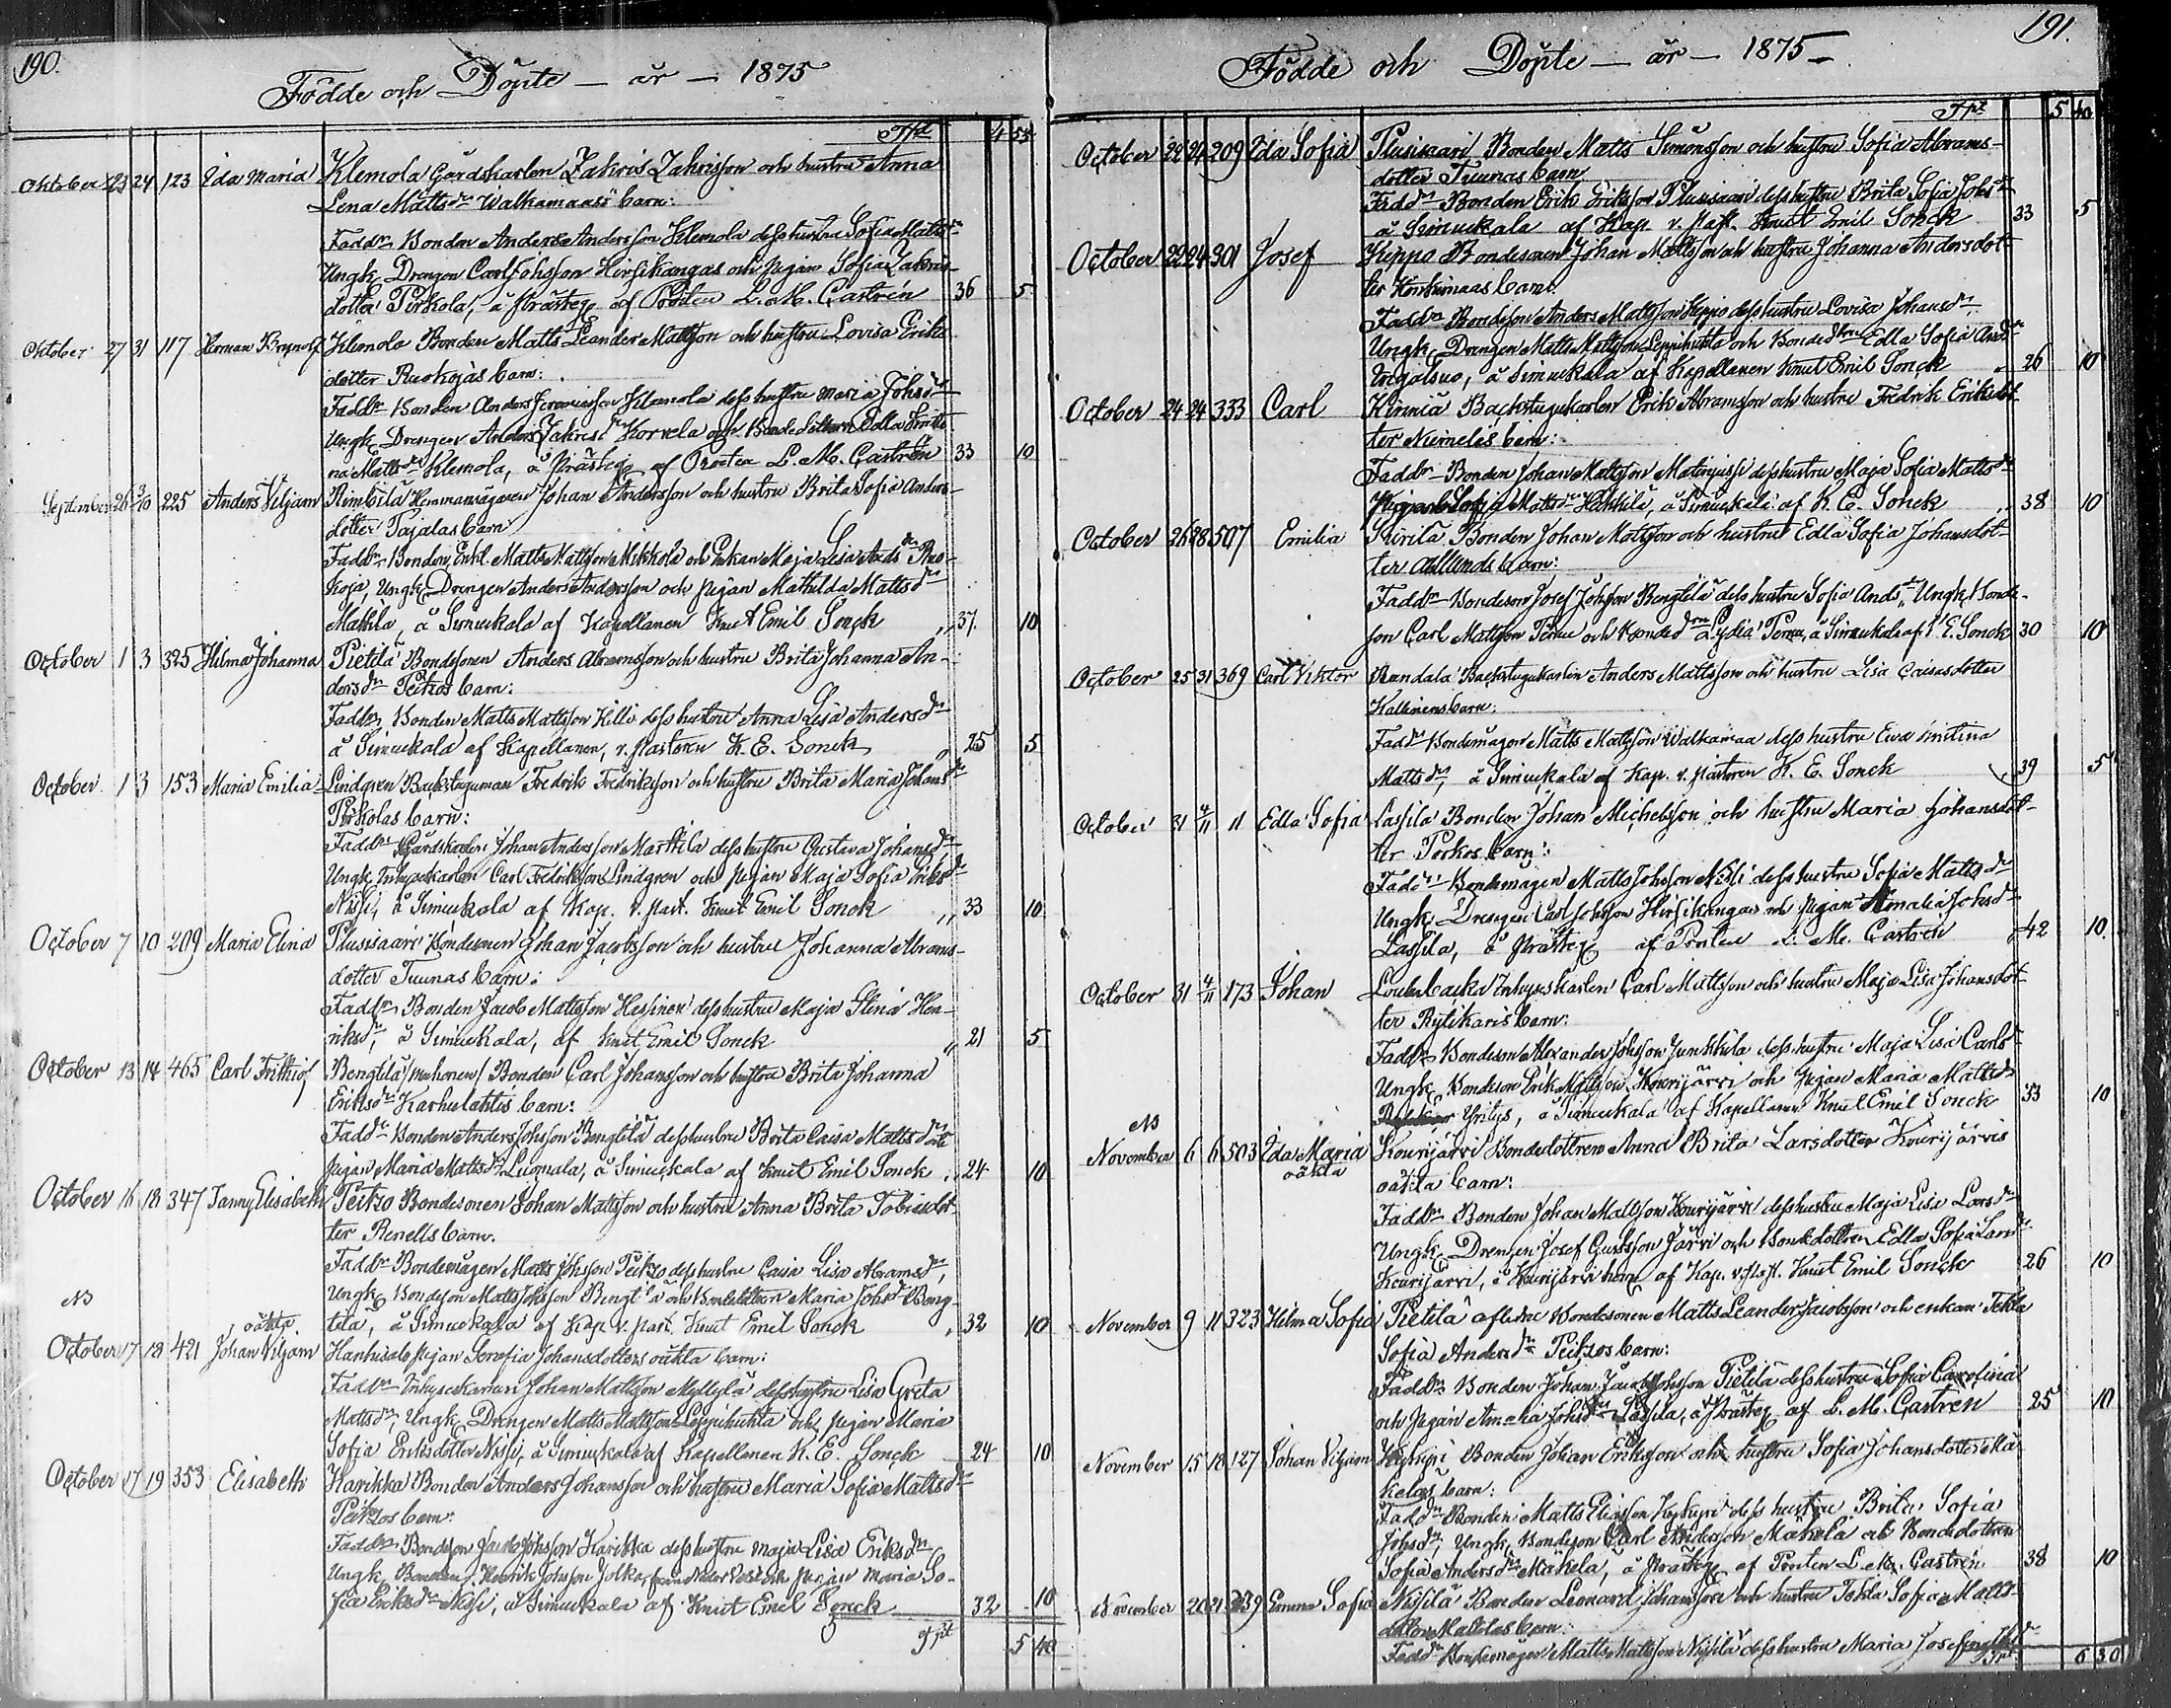 190.
Födde och Döpte — år — 1875
Tpt 4 55
Oktober 23 24 123 Ida Maria Klemola Gårdskarlen Zakris Zakrisson och hustru Anna
Lena Mattsdr Walkamaas barn:
Faddr Bonden Anders Andersson Klemola dess hustru Sofia Mattsdr
Ungk. Drengen Carl Johsson Hirsikangas och pigan Sofia Zakris-
dotter Pirkola, å prästeg. af Prosten L. M. Castrén 36 5
Oktober 27 31 117 Herman Klemola Bonden Matts Leander Mattsson och hustru Lovisa Eriks-
dotter Ruokojas barn:
Faddr Bonden Anders Jeremiasson Klemola dess hustru Maria Johsdr
Ungk. Drengen Anders Zakriss. Korvela och Bondedottern Edla Kristi-
na Mattsdr Klemola, å prästeg. af Prosten L. M. Castrén 33 10
September 26 3/10 225 Anders Viljam Rimbilä Hemmansägaren Johan Andersson och hustru Brita Sofia Anders-
dotter Pajalas barn
Faddr Bonden, Enkl. Matts Mattsson Mikkola och Enkan Maja Lisa Andsdr Ruo-
koja, Ungk. Drengen Anders Andersson och pigan Mathilda Mattsdr
Mattila, å Simuckala af Kapellanen Knut Emil Sonck 37. 10
October 1 3 325 Hilma Johanna Pietilä Bondesonen Anders Abramsson och hustru Brita Johanna An-
dersdr Peitzos barn:
Faddr Bonden Matts Mattsson Hilli dess hustru Anna Lisa Andersdr
å Simuckala af Kapellanen, v. pastoren K. E. Sonck 25 5
October 1 3 153 Maria Emilia Lindgren Backstuguman Fredrik Fredriksson och hustru Brita Maria Johansdr
Pirkolas barn:
Faddr Gårdskarlen Johan Andersson Marttila dess hustru Gustava Johansdr
Ungk. Inhyseskarlen Carl Fredriksson Lindgren och pigan Maja Sofia Eriksdr
Nissi, å Simuckala af Kap. v. past. Knut Emil Sonck 33 10
October 7 10 209 Maria Elina Plusisaari Bondesonen Johan Jacobsson och hustru Johanna Abrams-
dotter Tuunas barn:
Faddr Bonden Jacob Mattsson Hessinen dess hustru Maja Stina Hen-
riksdr, å Simuckala, af Knut Emil Sonck 21 5
October 13 14 465 Carl Frithiof Bengtilä /Muhonen/ Bonden Carl Johansson och hustru Brita Johanna
Eriksdr Karhulahtis barn:
Faddr Bonden Anders Johsson Bengtilä dess hustru Brita Caisa Mattsdr och
pigan Maria Mattsdr Luomala, å Simuckala af Knut Emil Sonck 24 10
October 16 18 347 Fanny Elisabeth Peitzo Bondesonen Johan Mattsson och hustru Anna Brita Tobiasdot-
ter Renells barn.
Faddr Bondemågen Matts Johsson Peitzo dess hustru Caisa Lisa Abramsdr,
Ungk. Bondeson Matts Johsson Bengtilä och Bondedottern Maria Johsdr Beng-
NB
tilä, å Simuckala af Kap. v. past. Knut Emil Sonck 32 10
oäkta
October 17 18 421 Johan Viljam Hanhisalo pigan Serafia Johansdotters oäkta barn:
Faddr Inhysekarlen Johan Mattsson Myllylä dess hustru Lisa Greta
Mattsdr, Ungk. Drengen Matts Mattsson Leppihuhta och pigan Maria
Sofia Eriksdotter Nissi, å Simuckala af Kapellanen K. E. Sonck 24 10
October 17 19 353 Elisabeth Harikka Bonden Anders Johansson och hustru Maria Sofia Mattsdr
Peitzos barn:
Faddr Bondeson Johsson Harikka dess hustru Maja Lisa Eriksdr
Ungk. Bonden Henrik Johsson Jolkar och pigan Maria So-
fia Eriksdr Nissi, å Simuckala af Knut Emil Sonck 32 10
Tpt 5 40
191.
Födde och Döpte — år — 1875 —
Tpt 5 40
October 22 24 209 Ida Sofia Plusisaari Bonden Matts Simonsson och hustru Sofia Abrams-
dotter Tuunas barn
Faddr Bonden Erik Eriksson Plusisaari dess hustru Brita Sofia Johsdr
å Simuckala af Kap. v. past. Knut Emil Sonck 33 5
October 22 24 301 Josef Keppo Bondesonen Johan Mattsson och hustru Johanna Andersdot-
ter barn:
Faddr Bondeson Anders Mattsson Keppo dess hustru Lovisa Johansdr,
Ungk. Drengen Matts Mattsson Leppihuhta och Bonded. Edla Sofia Andsdr
å Simuckala af Kapellanen Knut Emil Sonck 26 10
October 24 24 333 Carl Kinniä Backstugukarlen Erik Abramsson och hustru Fredrik Eriksdot-
ter Niemeläs barn:
Faddr Bonden Johan Mattsson dess hustru Maja Sofia Mattsdr
Pigan Sofia Mattsdr Heikkilä, å Simuckala af K. E. Sonck 38 10
October 26 28 507 Emilia Siirilä Bonden Johan Mattsson och hustru Edla Sofia Johansdot-
ter Allunds barn:
Faddr Bondeson Josef Johsson Bengtilä dess hustru Sofia Andsdr, Ungk. Bonde-
son Carl Mattsson och Bonded. Lydia å Simuckala af K. E. Sonck 30 10
October 25 31 369 Carl Viktor Randala Backstugukarlen Anders Mattsson och hustru Lisa Caisasdotter
Kallinens barn:
Faddr Bondemågen Matts Mattsson Walkamaa dess hustru Eva Kristina
Mattsdr, å Simuckala af Kap. v. pastoren K. E. Sonck 39 5
October 31 4/11 11 Edla Sofia Lassila Bonden Johan Michelsson och hustru Maria Johansdot-
ter Porkos barn:
Faddr Bondemågen Matts Johsson Nissi dess hustru Sofia Mattsdr
Ungk. Drengen Carl Johsson Hirsikangas och pigan Amalia Johsdr
Lassila, å prästeg. af Prosten L. M. Castrén 42 10.
October 31 4/11 173 Johan Louhenbacka Inhyseskarlen Carl Mattsson och hustru Maja Lisa Johansdot-
ter Rytikaris barn:
Faddr Bondeson Alexander Johsson Junkkila dess hustru Maja Lisa Carlsdr
Ungk. Bondeson Erik Mattsson Kourijärvi och pigan Maria Mattsdr
Yritys, å Simuckala af Kapellanen Knut Emil Sonck 33 10
NB
November 6 6 503 Ida Maria Kourijärvi Bondedottren Anna Brita Larsdotter Kourijärvis
oäkta oäkta barn:
Faddr Bonden Johan Mattsson Kourijärvi dess hustru Maja Lisa Larsdr
Ungk. Drengen Josef Gustsson Järvi och Bondedottren Edla Sofia Larsdr
Kourijärvi, å Kourijärvi hem af Kap. v. past. Knut Emil Sonck 26 10
November 9 11 323 Hilma Sofia Pietilä aflidne Bondesonen Matts Leander Jacobsson och enkan Tekla
Sofia Andersdr Peitzos barn:
Faddr Bonden Johan Jacob Johsson Pietilä dess hustru Sofia Carolina
och Pigan Amalia Johsdr Lassila, å prästeg. af L. M. Castrén 25 10
November 15 18 127 Johan Viljam Keskypi Bonden Johan Eriksson och hustru Sofia Johansdotter Mä-
keläs barn:
Faddr Bonden Matts Eliasson dess hustru Brita Sofia
Johsdr, Ungk. Bondeson Carl Andersson Mäkelä och Bondedottren
Sofia Andersdr Mäkelä, å Prästeg. af Prosten L. M. Castrén 38 10
November 20 21 239 Emma Sofia Nissilä Bonden Leonard Johansson och hustru Tekla Sofia Matts-
dotter barn:
Faddr Bondemågen Matts Mattsson Nissilä dess hustru Maria Josefina
Tpt 6 30